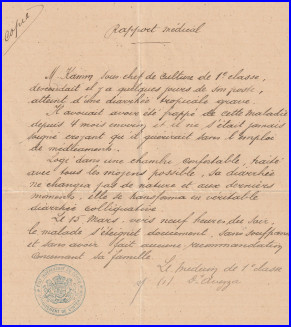 Copie
Rapport médical
M. Kamm, sous chef de Culture de 1e classe,
descendait il y a quelques jours de son poste,
atteint d'une diarrhée tropicale grave.
Il avouait avoir été frappé de cette maladie
depuis 4 mois environ et il ne s'était jamais
soigné croyant qu'il guérirait sans l'emploi
de médicaments.
Logé dans une chambre confortable, traité
avec tous les moyens possible, sa diarrhée
ne changea pas de nature et aux derniers
moments, elle se transforma en véritable
diarrhée colliquative.
Le 15 Mars, vers neuf heures du soir,
le malade s'éteignit doucement, sans souffrance
et sans avoir fait aucune recommandation
concernant sa famille.
Le Medecin de 1e classe